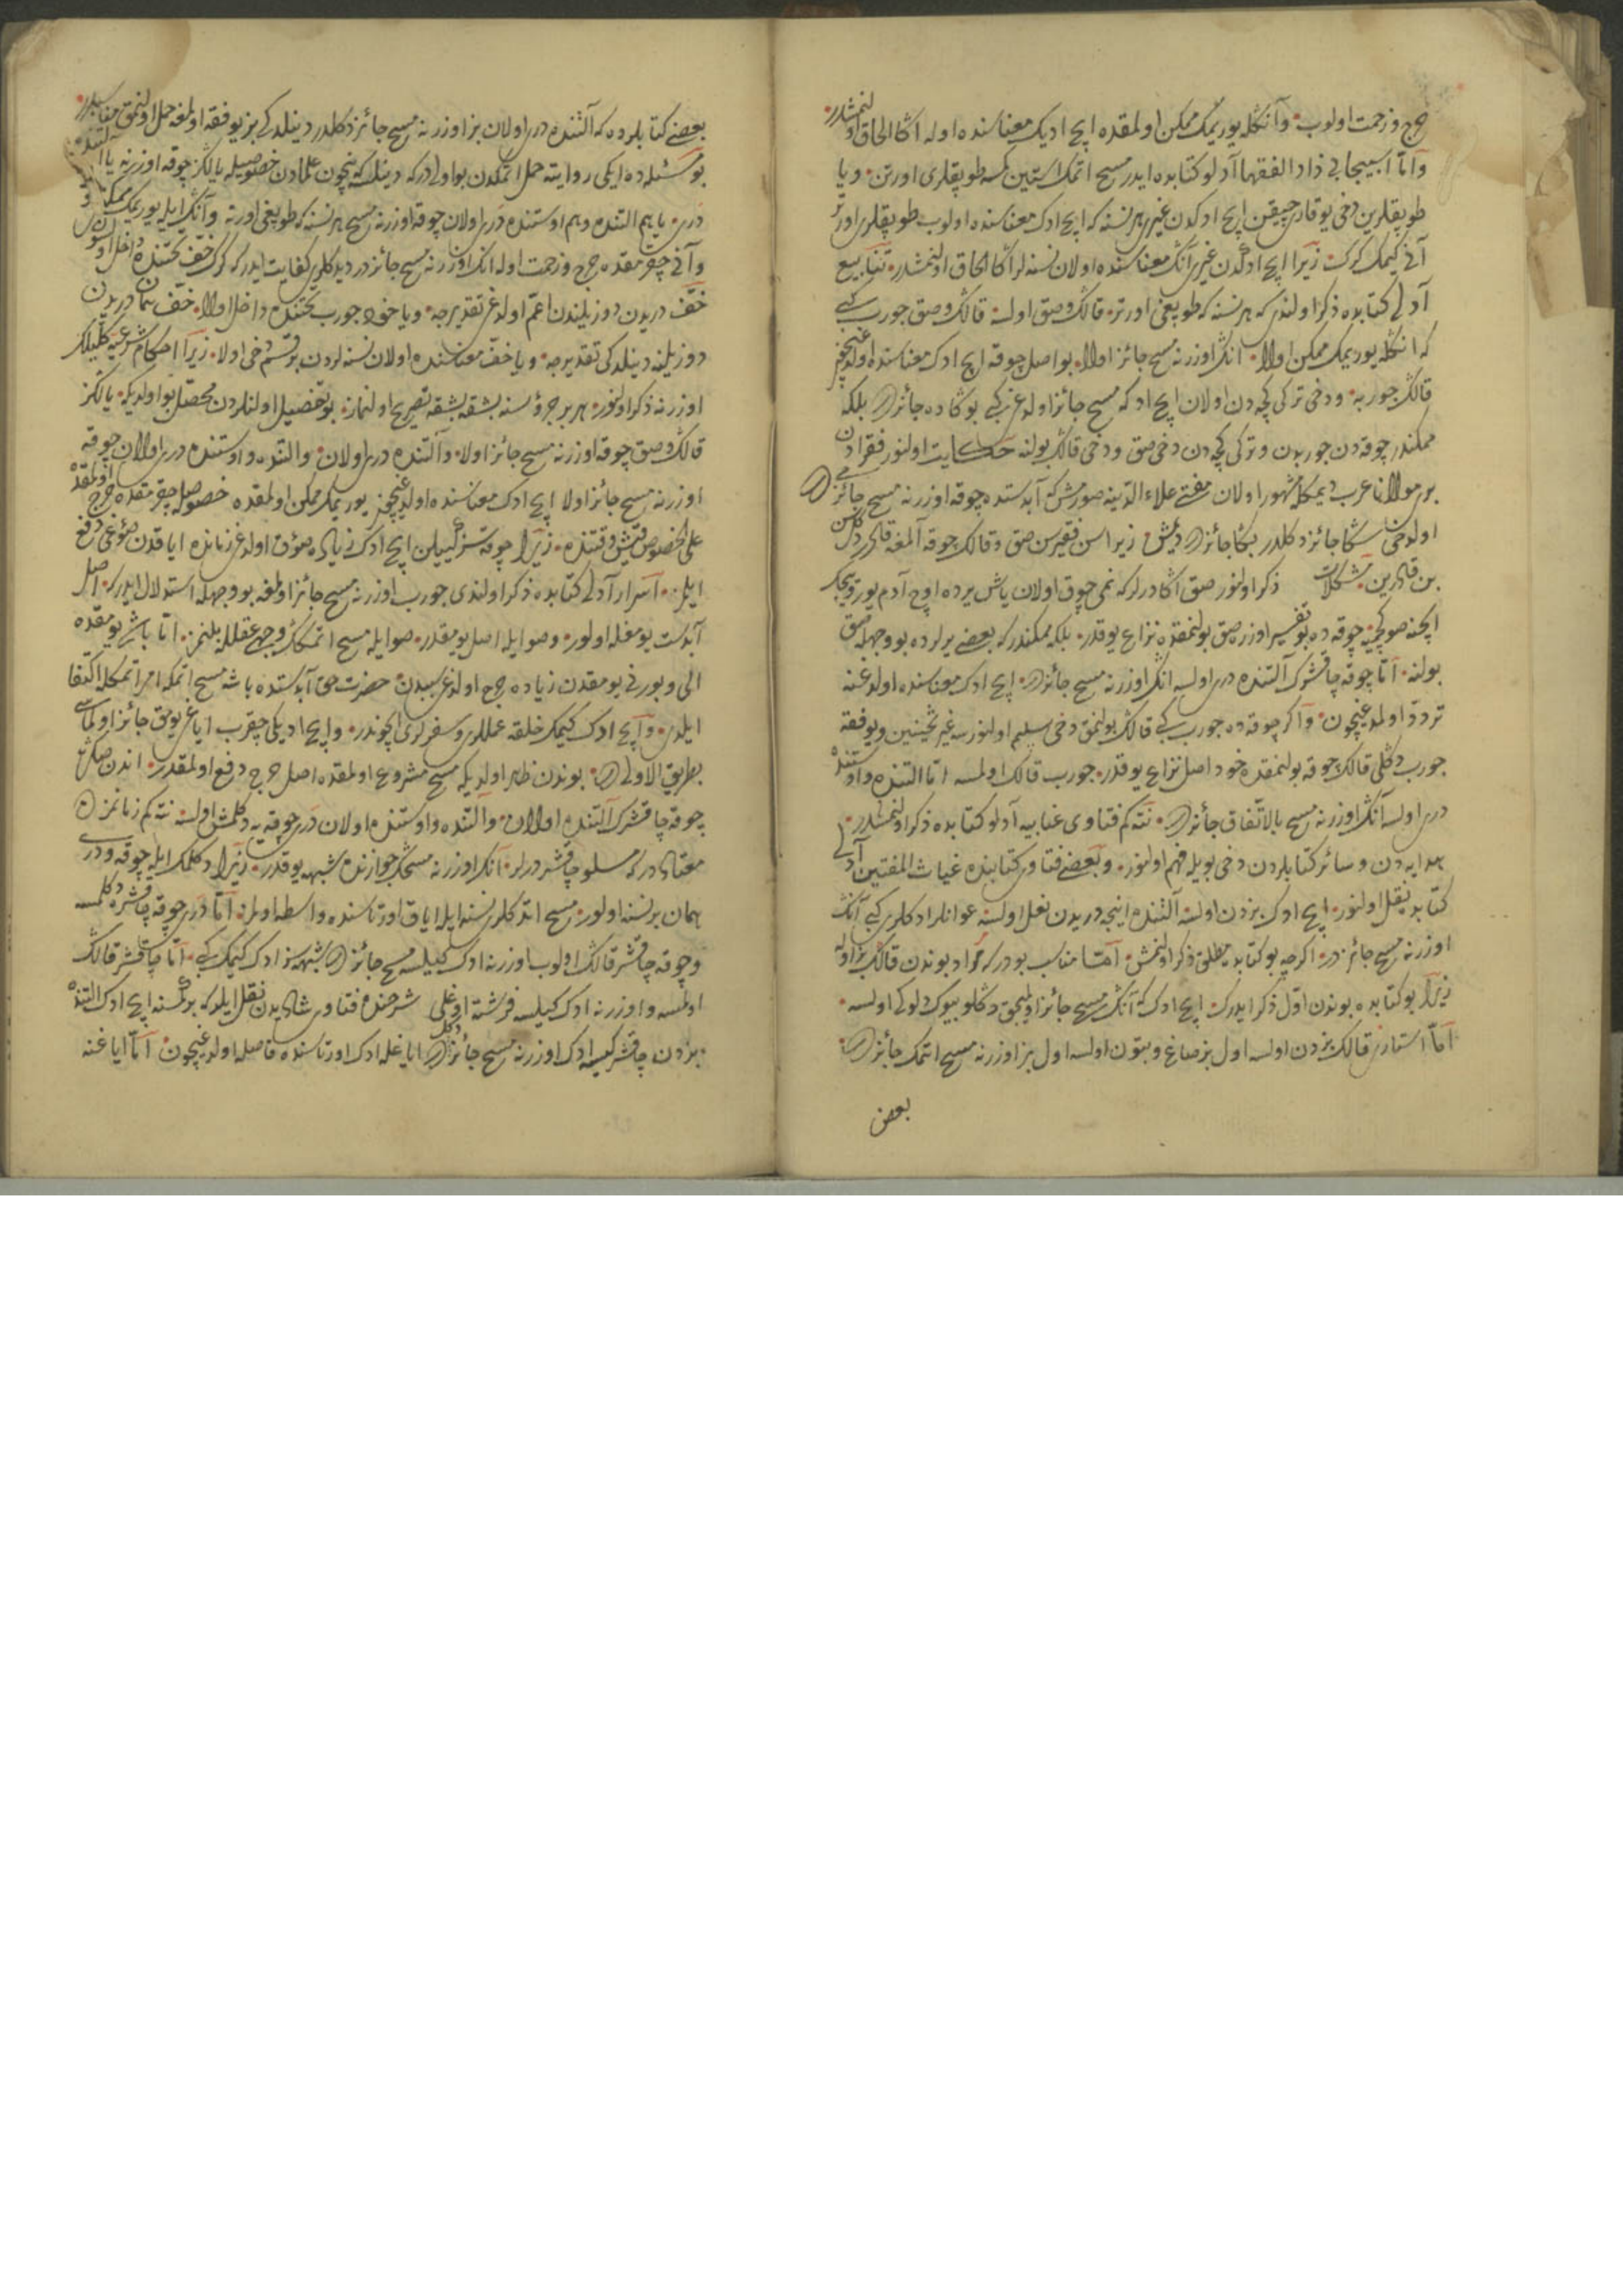 حرج و زحمت اولوب و آنكله يوريمك ممكن اولمقده ايچ اديك معناسنده اوله اكا الحاق اولنمشدر
و امّا اسبيجابى زاد الفقها آدلو كتابده ايدر مسح اتمك استين كمسه طوپقلرى اورتن و يا
طوپقلرين دخى يوقارى چيقن ايچ ادكدن غيرى هر نسنه كه ايچ ادك معناسنده اولوب طوپقلرى اورتر
آنى كيمك كرك زيرا ايچ ادكدن غيرى آنك معناسنده اولان نسنه لر اكا الحاق اولنمشدر
آدلى كتابده ذكر اولندى كه هر نسنه كه طوپغى اورتر قالك و صق اوله قالك و صق جورب كبى
كه انكله يوريمك ممكن اولا انك اوزرنه مسح جائز اولا بو اصل چوقه ايچ ادك معناسنده اولدغيچون
قالك جوربه و دخى تركى كچه دن اولان ايچ ادكه مسح جائز اولدغى كبى بوكا ده جائزدر بلكه
ممكندر چوقه دن جوربدن و تركى كچه دن دخى صق و دخى قالك بولنه حكايت اولنور فقرادن
بر مولانا عرب ديمكله مشهور اولان مفتى علاء الدينه صورمش كه آبدستده چوقه اوزرنه مسح جائزمى
اولدخى سكا جائز دكلدر بكا جائزدر ديمش زيرا سن فقيرسن صق و قالك چوقه آلمغه قادر دكلسن
بن قادرين مشكلات ذكر اولنور صق اكا درلر كه نمى چوق اولان ياش يرده اوچ آدم يوريجك
ايچنه صو كچميه چوقه ده بو تفسير اوزره صق بولنمقده نزاع يوقدر بلكه ممكندر كه بعضى يرلرده بو وجهله صق
بولنه امّا چوقه چاقشرك آلتنده درى اولسه انك اوزرنه مسح جائزدر ايچ ادك معناسنده اولدغنه
تردد اولمدغيچون و اكر چوقه ده جورب كبى قالك بولنمق دخى تسليم اولنورسه غير ثخينين و يوفقه
جورب دكلى قالك چوقه بولنمقده خود اصل نزاع يوقدر جورب قالك اولمسه امّا التنده و اوستنده
درى اولسه آنك اوزرنه مسح بالاتّفاق جائزدر نته كم فتاوى عتابيه آدلو كتابده ذكر اولنمشدر
هدايه دن و سائر كتابلردن دخى بويله فهم اولنور و بعضى فتاوى كتابنده غياث المفتين آدلى
كتابدن نقل اولنور ايچ ادك بزدن اولسه آلتنده اينجه دريدن نعل اولسه عوانلر ادكلرى كبى آنك
اوزرنه مسح جائزدر اكرچه بو كتابده مطلق ذكر اولنمش امّا مناسب بودر كه مراد بوندن قالك بز اوله
زيرا بو كتابده بوندن اوّل ذكر ايدرك ايچ ادك كه آنك مسح جائز اولمجق دكلو بيوك دلوكى اولسه
امّا استارى قالك بزدن اولسه اول بز صاغ و بتون اولسه اول بز اوزرنه مسح اتمك جائزدر
بعض
بعضى كتابلرده كه آلتنده درى اولان بز اوزرنه مسح جائز دكلدر دينلدكى بز يوفقه اولمغه حمل اولنمق مناسبدر
بو مسئله ده ايكى روايته حمل اتمكدن بو اولى دركه دينلسه كه نيچون علمادن خصوصيله يالكز چوقه اوزرنه يا آلتنده
درى يا هم التنده و هم اوستنده درى اولان چوقه اوزرنه مسح هر نسنه كه طوپغى اورته و آنك ايله يوريمك ممكن
و آنى چقرمقده حرج و زحمت اوله انك اوزرنه مسح جائزدر ديدكلرى كفايت ايدر كه كرك خف تحتنده داخل اولسون
خفّ دريدن دوزيلندن اعمّ اولدغى تقديرجه و يا خود جورب تحتنده داخل اولا خفّ همان دريدن
دوزيلنه دينلدكى تقديرجه و يا خفّ معناسنده اولان نسنه لردن بر قسم دخى اولا زيرا احكام شرعيه كلّيلك
اوزرنه ذكر اولنور هر بر جزؤسنه بشقه بشقه تصريح اولنماز بو تفصيل اولنلردن محصّل بو اولدى كه يالكز
قالك و صق چوقه اوزرنه مسح جائز اولا و آلتنده درى اولان و التنده و اوستنده درى اولان چوقه
اوزرنه مسح جائز اولا ايچ ادك معناسنده اولدغيچون يوريمك ممكن اولمقده خصوصيله چقرمقده حرج اولمقده
على الخصوص قيش وقتنده زيرا چوقه سز كييلن ايچ ادك زياده صوق اولدغى زمانده اياقدن صوغى دفع
ايلمز اسرار آدلى كتابده ذكر اولندى جورب اوزرنه مسح جائز اولمغه بو وجهله استدلال ايدر كه اصل
آبدست يومغله اولور و صو ايله اصل يومقدر صو ايله مسح اتمكك وجهى عقلله بلنمز امّا باشى يومقده
الى و يوزى يومقدن زياده حرج اولدغى سببدن حضرت حق آبدستده باشه مسح اتمكه امر اتمكله اكتفا
ايلدى و ايچ ادك كيمك خلقه عمللرى و سفرلرى ايچوندر و ايچ اديكى چقرب اياغى يومق جائز اولماسى
بطريق الاولى در بوندن ظاهر اولدى كه مسح مشروع اولمقده اصل حرج دفع اولمقدر اندن صكره
چوقه چاقشرك آلتنده اولان و التنده و اوستنده اولان درى چوقه يه دكلمش اولسه نته كم زمانمزده
معتاددر كه مسلو چاقشر درلر آنك اوزرنه مسحك جوازنده شبهه يوقدر زيرا دكلمك ايله چوقه و درى
همان بر نسنه اولور مسح اتدكلرى نسنه ايله اياق اورتاسنده واسطه اولمز امّا درى چوقه چاقشره دكلمسه
و چوقه چاقشر قالك اولوب اوزرنه ادك كييلسه مسح جائزدر شبهه سز ادك كيمك كبى امّا چاقشر قالك
اولمسه و اوزرنه ادك كييلسه فرشته اوغلى شرحنده فتاوى شاذيدن نقل ايلر كه بر كمسنه ايچ ادك التنده
بزدن چاقشر كيسه ادك اوزرنه مسح جائز دكلدر اياغله ادك اورتاسنده فاصله اولدغيچون امّا اياغنه